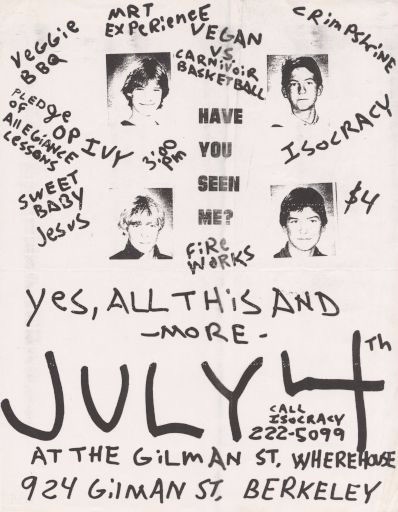 MRT
EXPERIENCE
CRIMPSHRINE
VEGGIE
BBQ
VEGAN
VS.
CARNIVOIR
BASKETBALL
PLEDGE
OF
AllEGIANCE
LESSONS
OP IVY
3:00
PM
HAVE
YOU
SEEN
ME?
ISOCRACY
SWEET
BABY
JESUS
$4
FiRE
WORKS
YES, ALL THiS AND
-MORE-
JULY 4Th
CALL
ISOCRACY
222-5099
AT THE GiLMAN ST. WHEREHOUSE
924 GiLMAN ST. BERKELEY